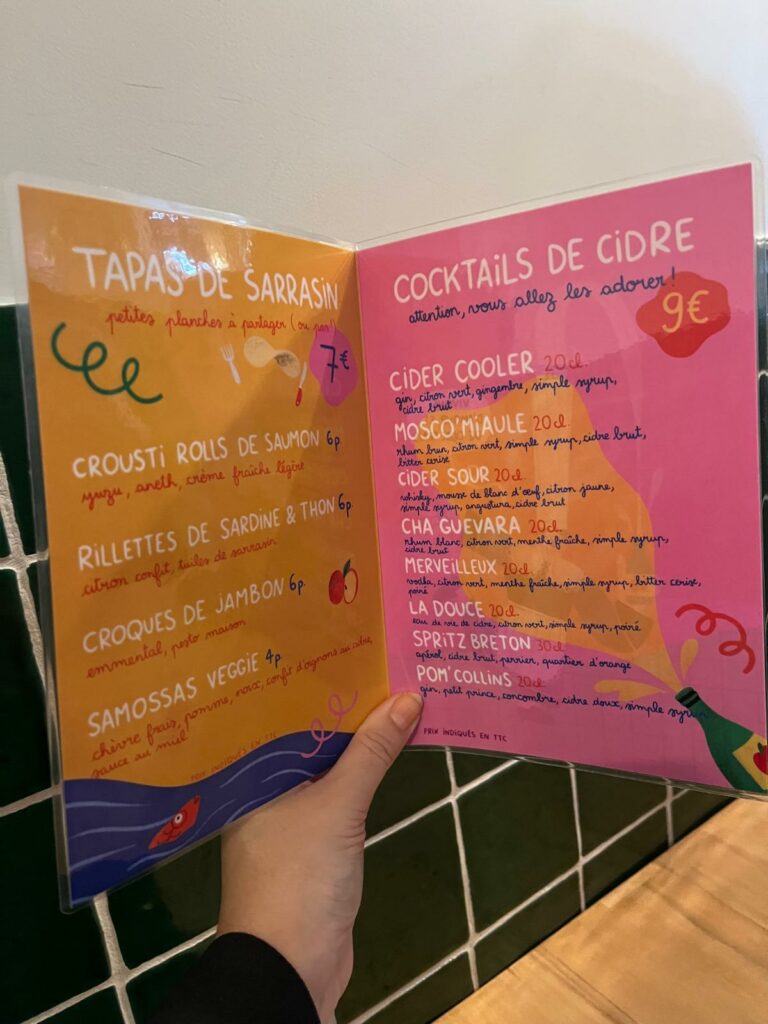 TAPAS DE SARRASIN
petites planches à partager (ou pas!)
7€
CROUSTI ROLLS DE SAUMON 6p.
yuzu, aneth, crème fraîche légère
RILLETTES DE SARDINE & THON 6p.
citron confit, tuiles de sarrasin
CROQUES DE JAMBON 6p.
emmental, pesto maison
SAMOSSAS VEGGIE 4p.
chèvre frais, pomme, noix, confit d'oignons au cidre,
sauce au miel
PRIX INDIQUÉS EN TTC
COCKTAILS DE CIDRE
attention, vous allez les adorer!
9€
CIDER COOLER 20cl.
gin, citron vert, gingembre, simple syrup,
cidre brut
MOSCO'MIAULE 20cl.
rhum brun, citron vert, simple syrup, cidre brut,
bitter cerise
CIDER SOUR 20cl.
whisky, mousse de blanc d'œuf, citron jaune,
simple syrup, angustura, cidre brut
CHA GUEVARA 20cl.
rhum blanc, citron vert, menthe fraîche, simple syrup,
cidre brut
MERVEILLEUX 20cl.
vodka, citron vert, menthe fraîche, simple syrup, bitter cerise,
poiré
LA DOUCE 20cl.
eau de vie de cidre, citron vert, simple syrup, poiré
SPRITZ BRETON 30cl.
apérol, cidre brut, perrier, quartier d'orange
POM'COLLINS 20cl.
gin, petit prince, concombre, cidre doux, simple syrup
PRIX INDIQUÉS EN TTC